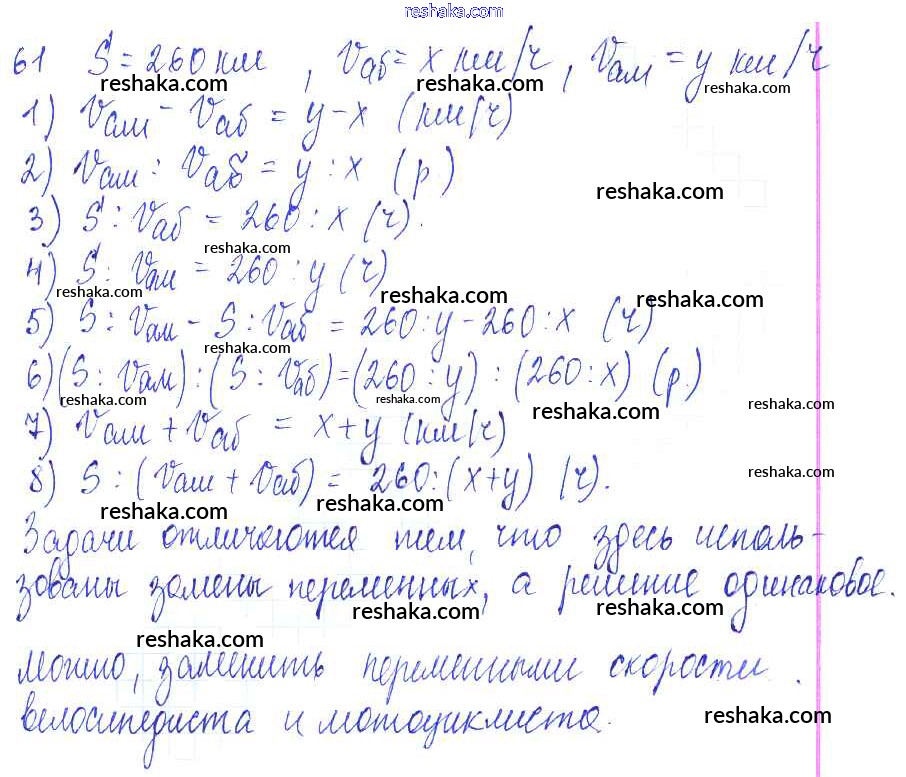 reshaka.com
61 S = 260 км, Vаб = x км/ч, Vам = y км/ч
reshaka.com reshaka.com reshaka.com
1) Vам - Vаб = y - x (км/ч)
2) Vам : Vаб = y : x (р.)
reshaka.com
3) S : Vаб = 260 : x (ч).
reshaka.com
4) S : Vам = 260 : y (ч)
reshaka.com reshaka.com reshaka.com
5) S : Vам - S : Vаб = 260 : y - 260 : x (ч)
reshaka.com
6) (S : Vам) : (S : Vаб) = (260 : y) : (260 : x) (р.)
reshaka.com reshaka.com reshaka.com reshaka.com
7) Vам + Vаб = x + y (км/ч)
8) S : (Vам + Vаб) = 260 : (x + y) (ч).
reshaka.com
reshaka.com reshaka.com
Задачи отличаются тем, что здесь исполь-
зованы замены переменных, а решение одинаковое.
reshaka.com reshaka.com
reshaka.com
Можно, заменить переменными скорости
велосипедиста и мотоциклиста.
reshaka.com